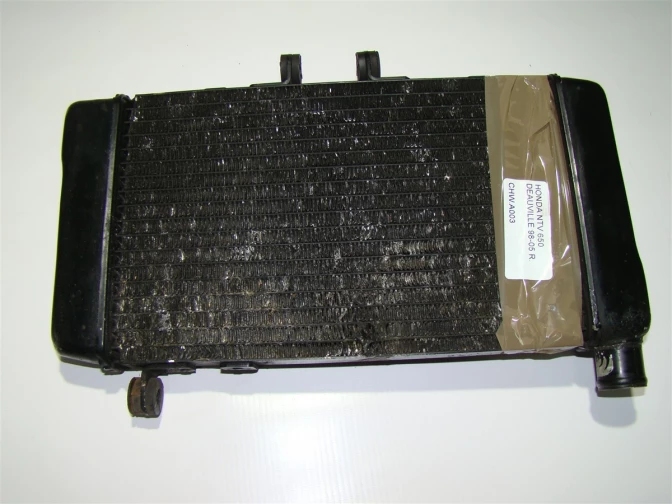 HONDA NTV 650
DEAUVILLE 98-05 R
CHW A003